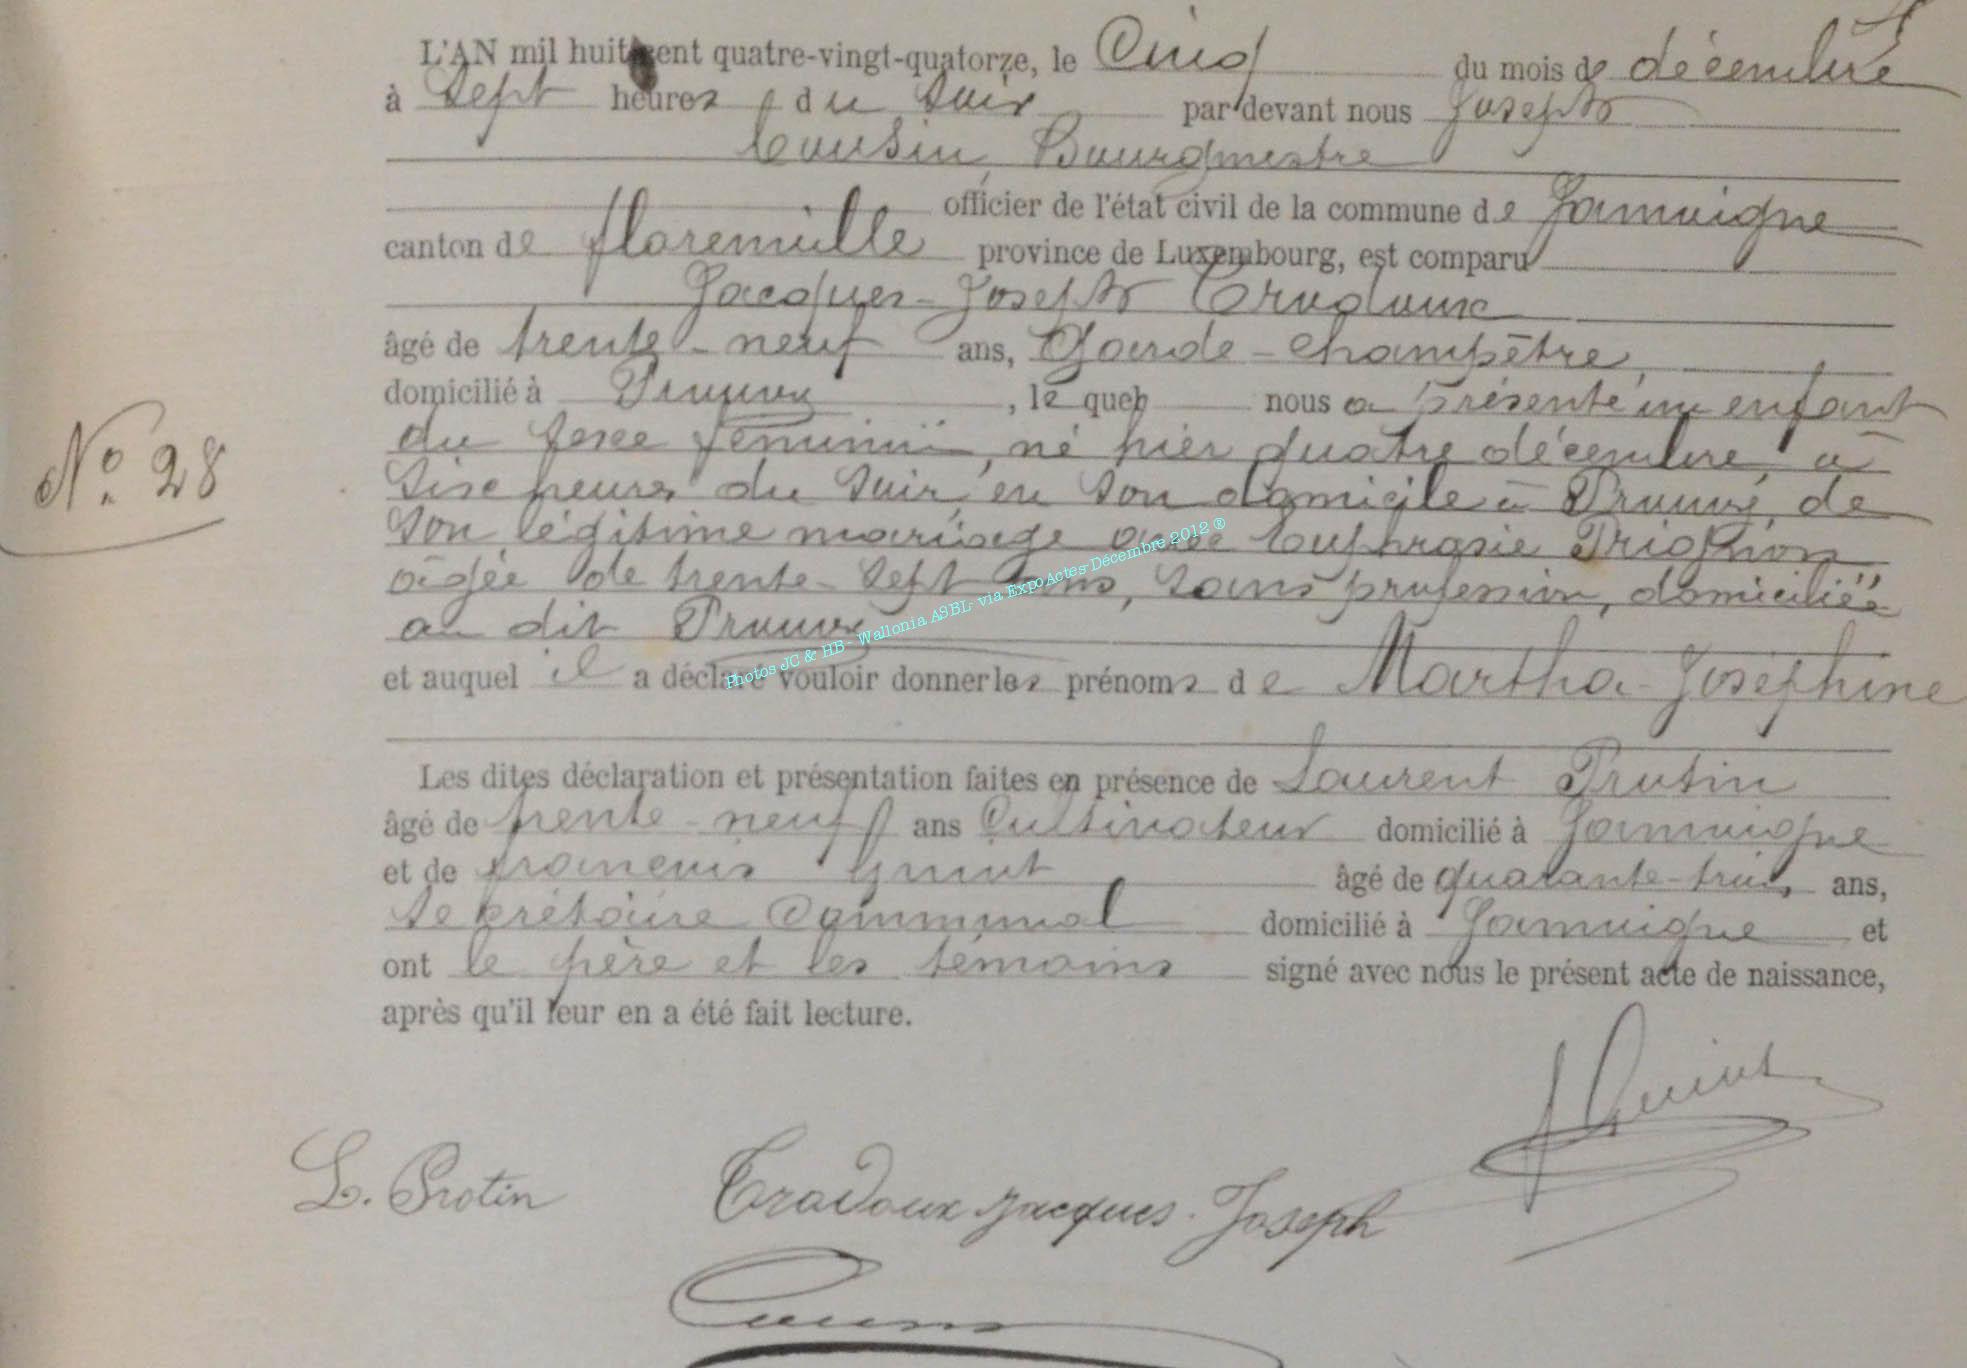 L'AN mil huit cent quatre-vingt-quatorze, le Cinq du mois de décembre
à Sept heures du Soir par devant nous Joseph
Cousin, Bourgmestre
officier de l'état civil de la commune de Jamoigne
canton de florenville province de Luxembourg, est comparu
Jacques-Joseph Tradoux
âgé de trente-neuf ans, Garde-Champêtre,
domicilié à Prouvy, lequel nous a présenté un enfant
du sexe féminin, né hier quatre décembre, à
Six heures du Soir, en Son domicile à Prouvy, de
Son légitime mariage avec Euphrasie Prignon
âgée de trente-Sept ans, Sans profession, domiciliée
au dit Prouvy
et auquel il a déclaré vouloir donner les prénoms de Martha-Joséphine
Nº 28
Photos JC & HB - Wallonia ASBL- via ExpoActes-Décembre 2012 ®
Les dites déclaration et présentation faites en présence de Laurent Protin
âgé de trente-neuf ans Cultivateur domicilié à Jamoigne
et de françois Guiot âgé de quarante-trois ans,
Secrétaire Communal domicilié à Jamoigne et
ont le père et les témoins signé avec nous le présent acte de naissance,
après qu'il leur en a été fait lecture.
L. Protin Tradoux Jacques-Joseph